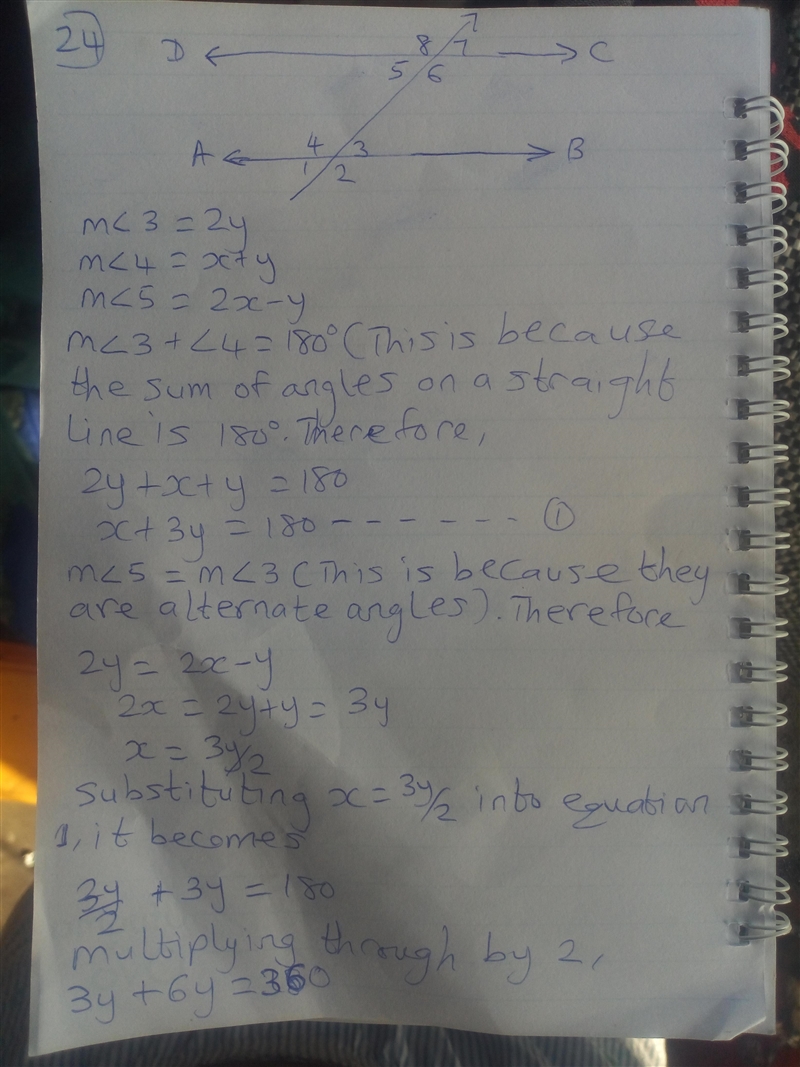 24
D 8 7 C
5 6
A 4 3 B
1 2
m<3 = 2y
m<4 = x+y
m<5 = 2x-y
m<3 + <4 = 180° (This is because
the sum of angles on a straight
line is 180°. Therefore,
2y + x + y = 180
x + 3y = 180 - - - - - - - ①
m<5 = m<3 (This is because they
are alternate angles). Therefore
2y = 2x - y
2x = 2y + y = 3y
x = 3y/2
Substituting x = 3y/2 into equation
1, it becomes
3y/2 + 3y = 180
multiplying through by 2,
3y + 6y = 360